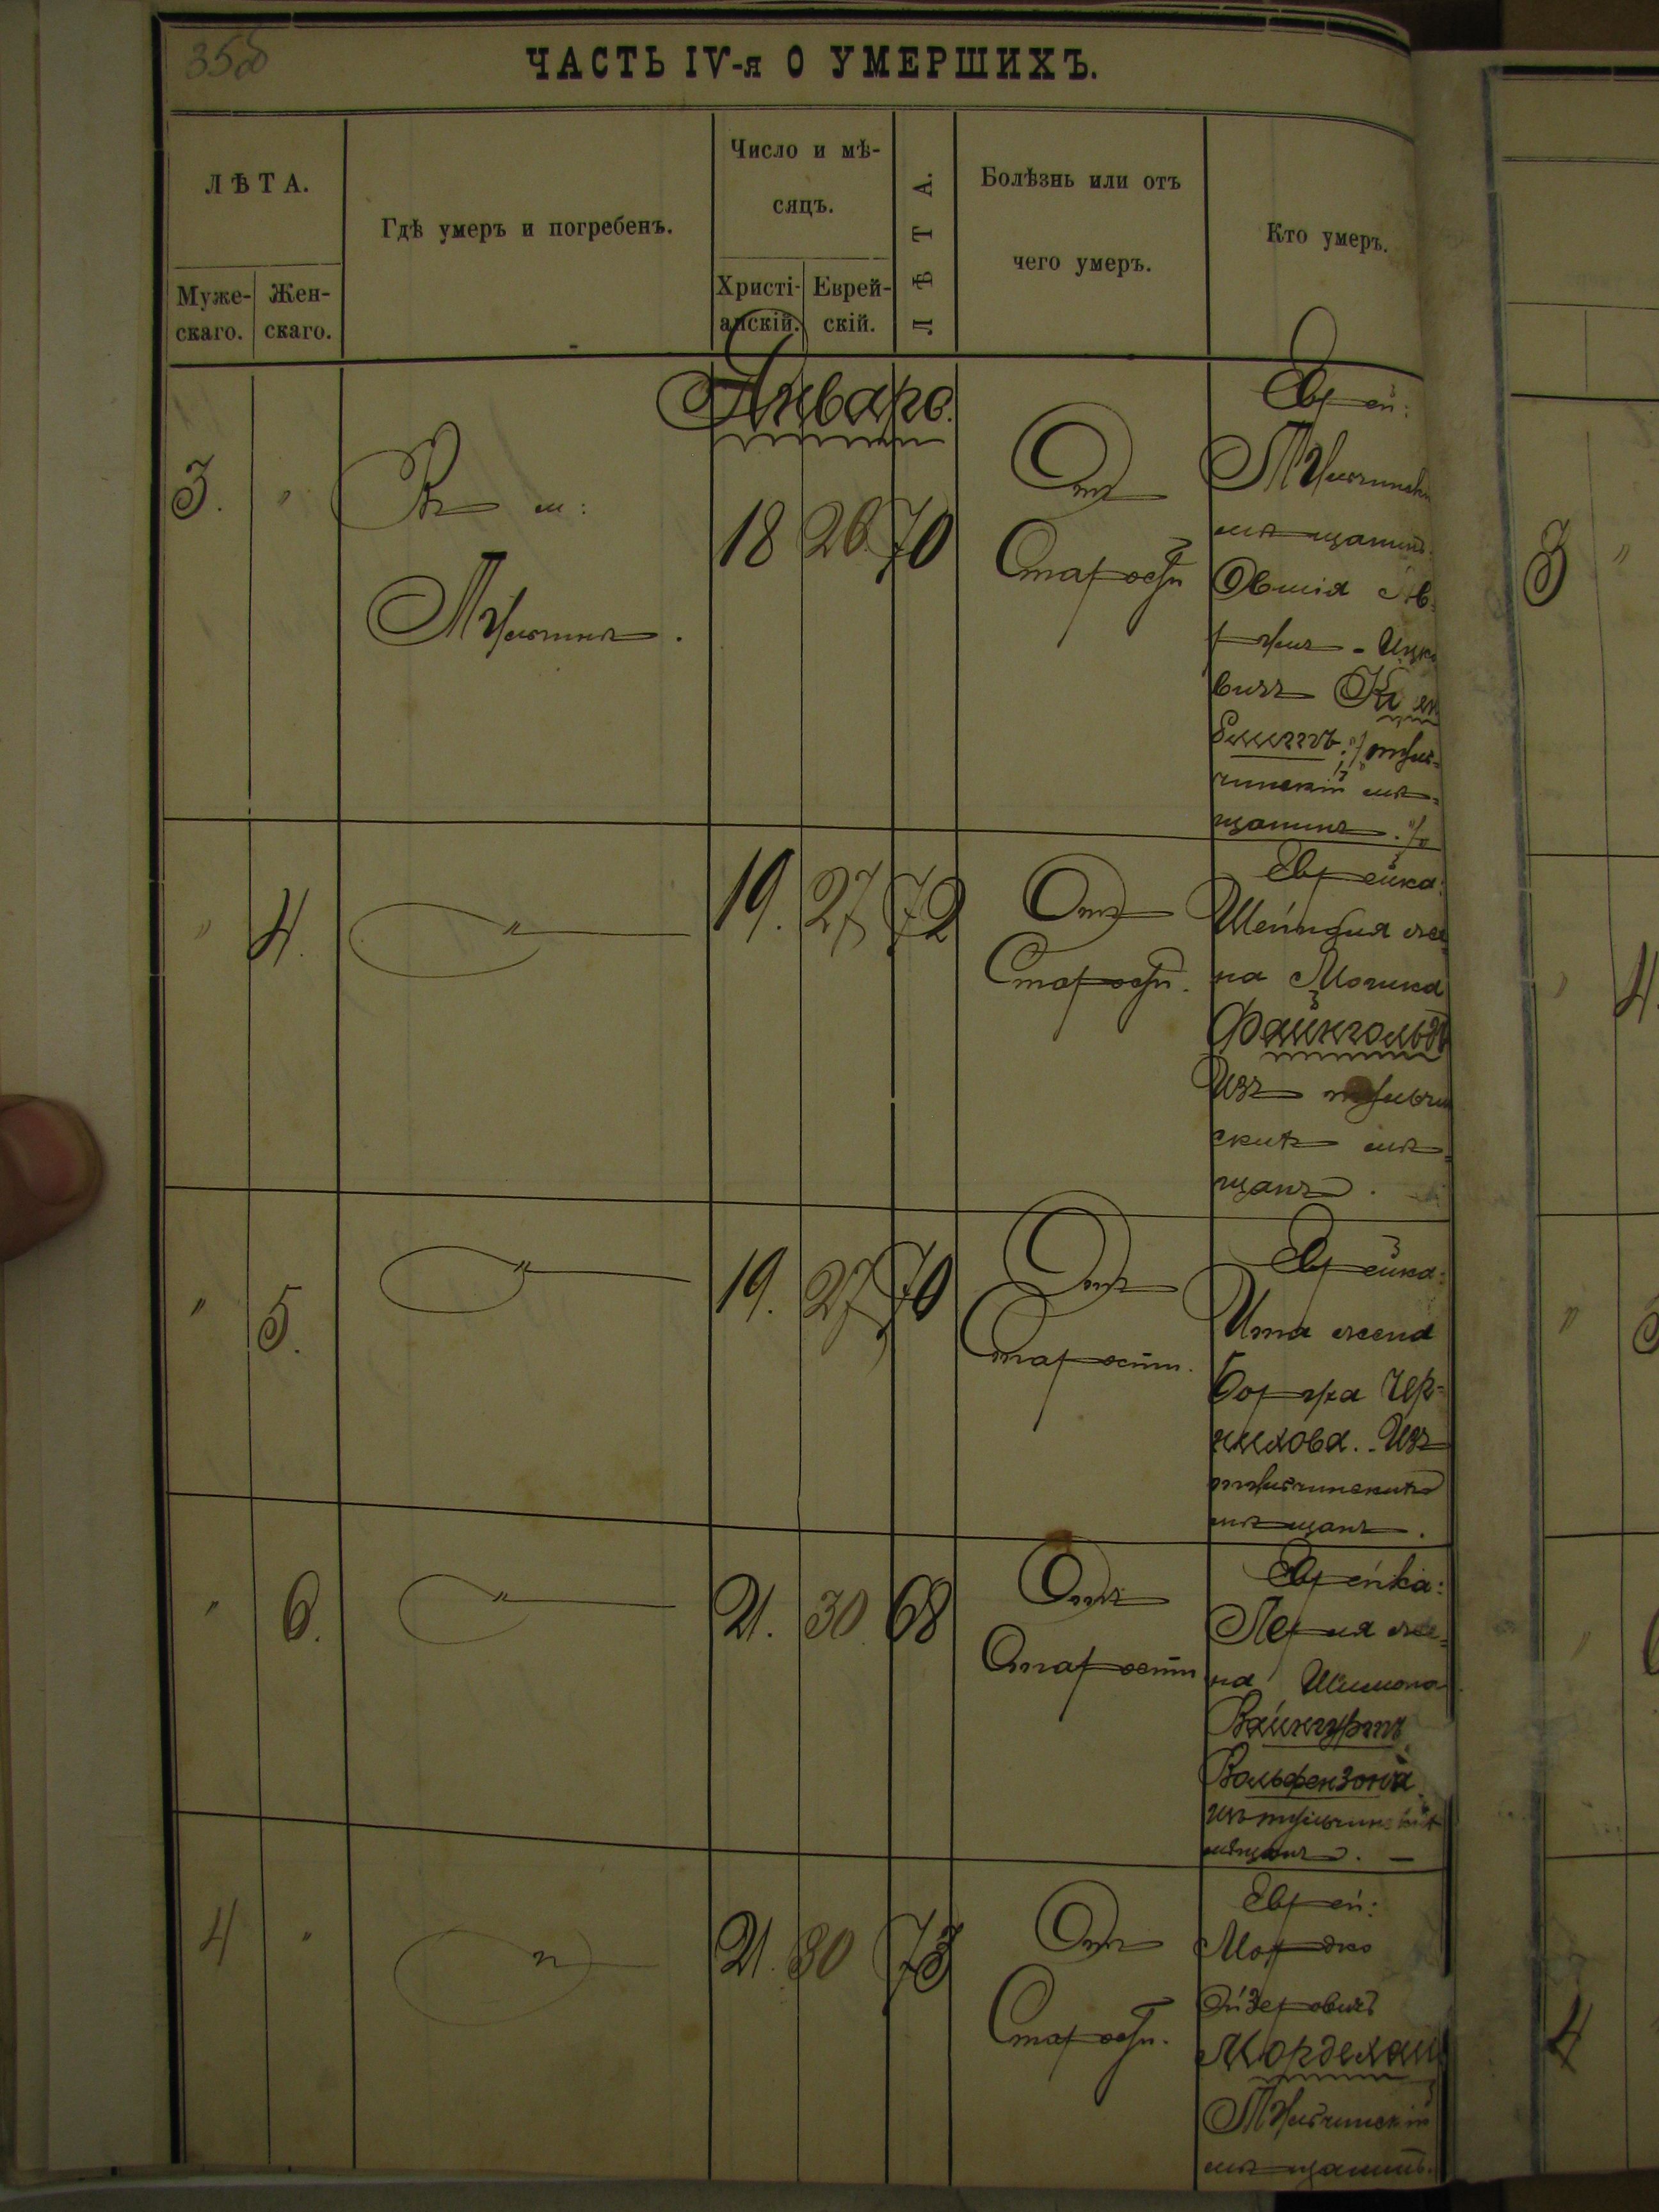 358
ЧАСТЬ IV-я О УМЕРШИХЪ.
ЛѢТА.
Муже-
скаго.
Жен-
скаго.
Гдѣ умеръ и погребенъ.
Число и мѣ-
сяцъ.
Христі-
анскій.
Еврей-
скій.
ЛѢТА.
Болѣзнь или отъ
чего умеръ.
Кто умеръ.
Январь.
3. " Въ м: 18 26 70 Отъ
Тульчинѣ.
Старости
Еврей:
Тульчински
мѣщанинъ
Овшія Ав
румъ - Ицко
вичъ
тульчинскій мѣ=
щанинъ.
" 4. " 19. 27 72 Отъ
Старости.
Еврейка:
Шейндля же
на Мошка
Файнгольдъ
Изъ тульчин
скихъ мѣ=
щанъ.
" 5. " 19. 27 70 Отъ
Старости.
Еврейка:
Ита жена
Боруха Чер=
нихова. Изъ
тульчинскихъ
мѣщанъ.
" 6. " 21. 30 68 Отъ
Старости
Еврейка:
Перля же=
на Шимона
Вайнгуртъ
Вольфензона
изъ тульчинскихъ
мѣщанъ. —
4 " " 21. 30 73 Отъ
Старости.
Еврей:
Мордко
Ейзеровичъ
Мордехай
Тульчинскій
мѣщанинъ.
3 "
" 4.
"
4